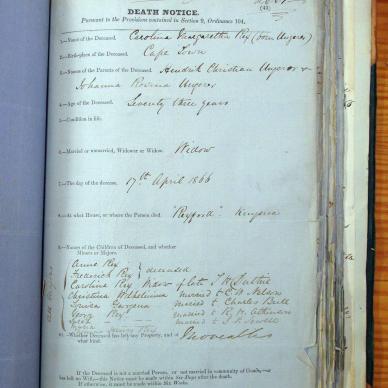 DEATH NOTICE.
Pursuant to the Provision contained in Section 9, Ordinance 104.
1.—Name of the Deceased. Carolina Margaretha Rex (born Ungerer)
2.—Birth-place of the Deceased. Cape Town
3.—Names of the Parents of the Deceased. Hendrik Christian Ungerer &
Johanna Rosina Ungerer
4.—Age of the Deceased. Seventy three years
5.—Condition in life.
6.—Married or unmarried, Widower or Widow. Widow
7.—The day of the decease. 17th April 1866
8.—At what House, or where the Person died. Knysna
9.—Names of the Children of Deceased, and whether
Minors or Majors.
Anne Rex
Frederick Rex } deceased
Caroline Rex Widow of late T. H. Duthie
Christina Wilhelmina married to
Louisa Georgina married to Charles Bull
George Rex married to R. M. Atkinson
married to
10.—Whether Deceased has left any Property, and of
what kind. Moveables
If the Deceased is not a married Person, or not married in community of Goods,—or
has left no Wife,—this Notice must be made within Six Days after the death.
If otherwise, it must be made within Six Weeks.